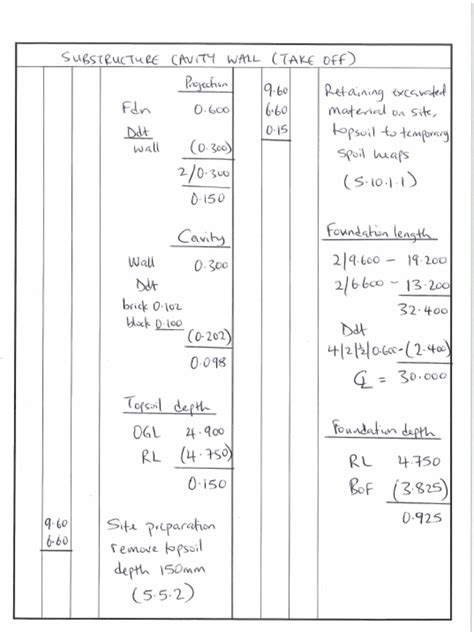 SUBSTRUCTURE CAVITY WALL (TAKE OFF)
Projection
Fdn 0.600
Ddt
wall (0.300)
2/0.300
0.150
Cavity
Wall 0.300
Ddt
brick 0.102
block 0.100
(0.202)
0.098
Topsoil depth
OGL 4.900
RL (4.750)
0.150
9.60 Site preparation
6.60 remove topsoil
depth 150mm
(5.5.2)
9.60 Retaining excavated
6.60 material on site,
0.15 topsoil to temporary
spoil heaps
(5.10.1.1)
Foundation length
2/9.600 - 19.200
2/6.600 - 13.200
32.400
Ddt
4/2/½/0.600-(2.400)
CL = 30.000
Foundation depth
RL 4.750
BoF (3.825)
0.925